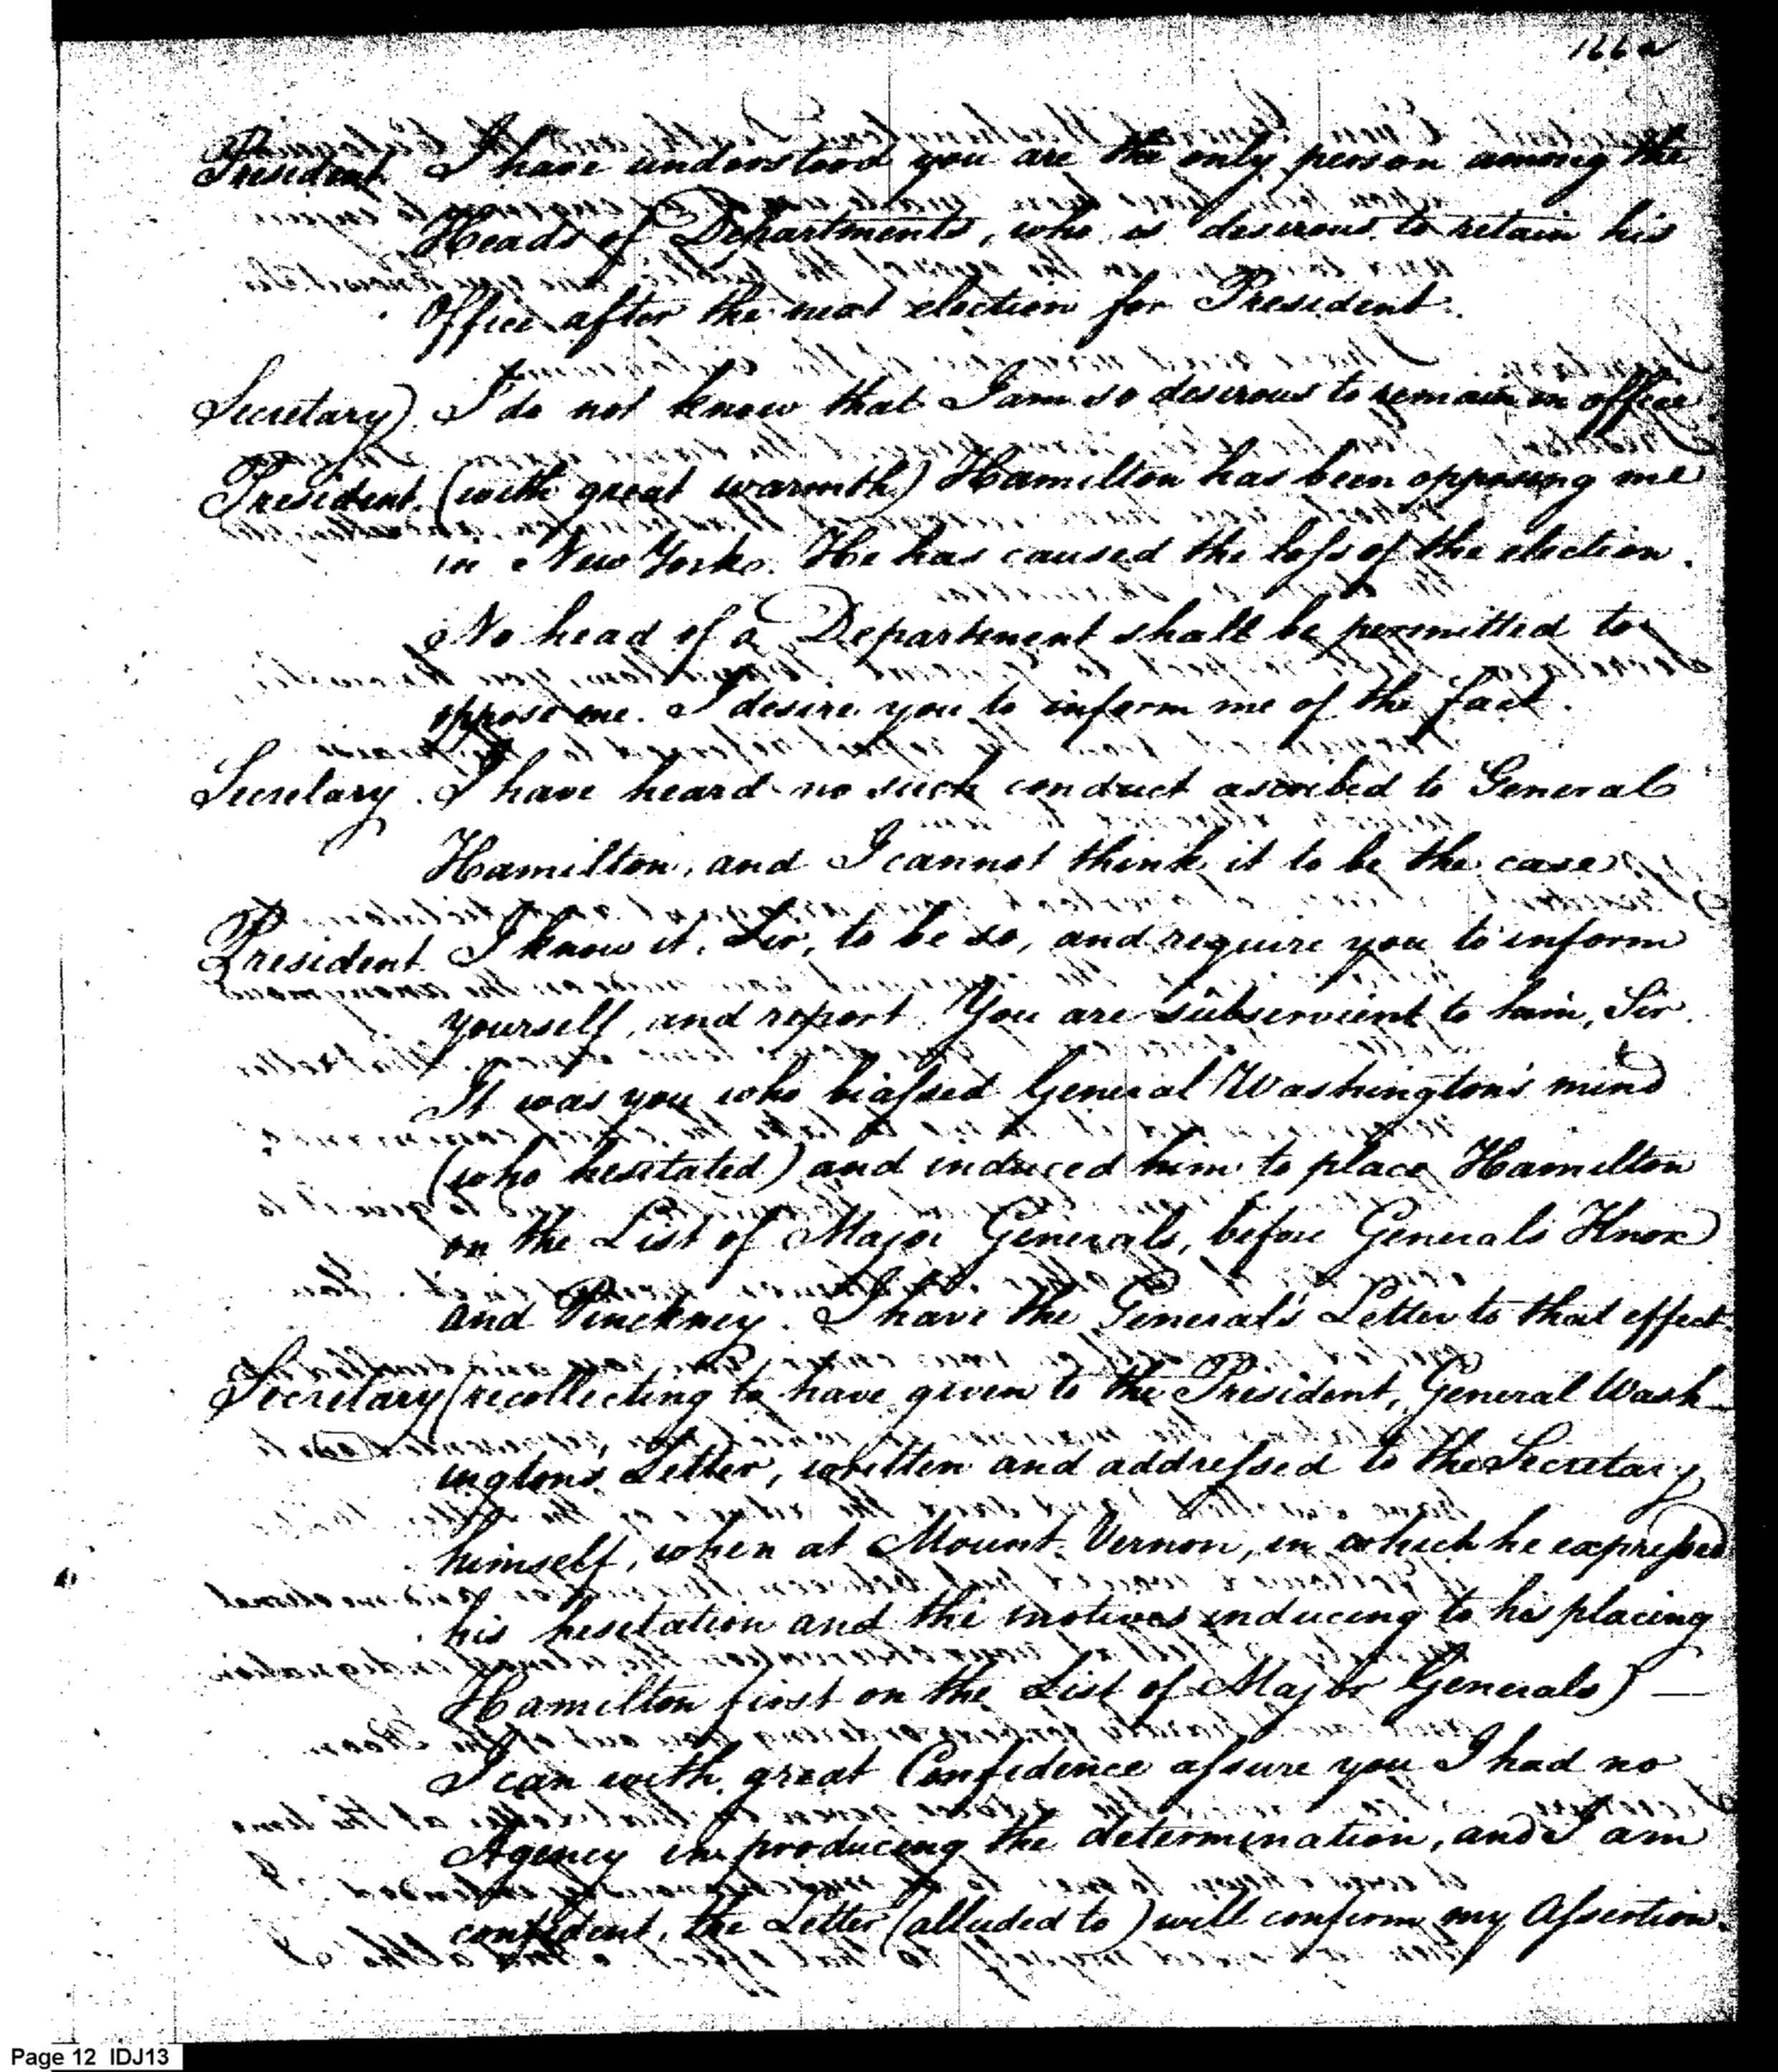 166
President. I have understood you are the only person among the
Heads of Departments, who is desirous to retain his
Office after the next election for President.
Secretary. I do not know that I am so desirous to remain in office
President. (with great warmth) Hamilton has been opposing me
in New York. He has caused the loss of the election.
No head of a Department shall be permitted to
oppose me. I desire you to inform me of the fact.
Secretary. I have heard no such conduct ascribed to General
Hamilton, and I cannot think it to be the case
President. I know it, Sir, to be so, and require you to inform
yourself, and report. You are subservient to him, Sir.
It was you who biassed General Washington's mind
(who hesitated) and induced him to place Hamilton
on the List of Major Generals, before Generals Knox
and Pinckney. I have the General's Letter to that effect.
Secretary (recollecting to have given to the President, General Wash-
ington's Letter, written and addressed to the Secretary
himself, when at Mount Vernon, in which he expressed
his hesitation and the motives inducing to his placing
Hamilton first on the List of Major Generals) —
I can with great Confidence assure you I had no
Agency in producing the determination, and I am
confident, the Letter (alluded to) will confirm my Assertion.
Page 12 IDJ13